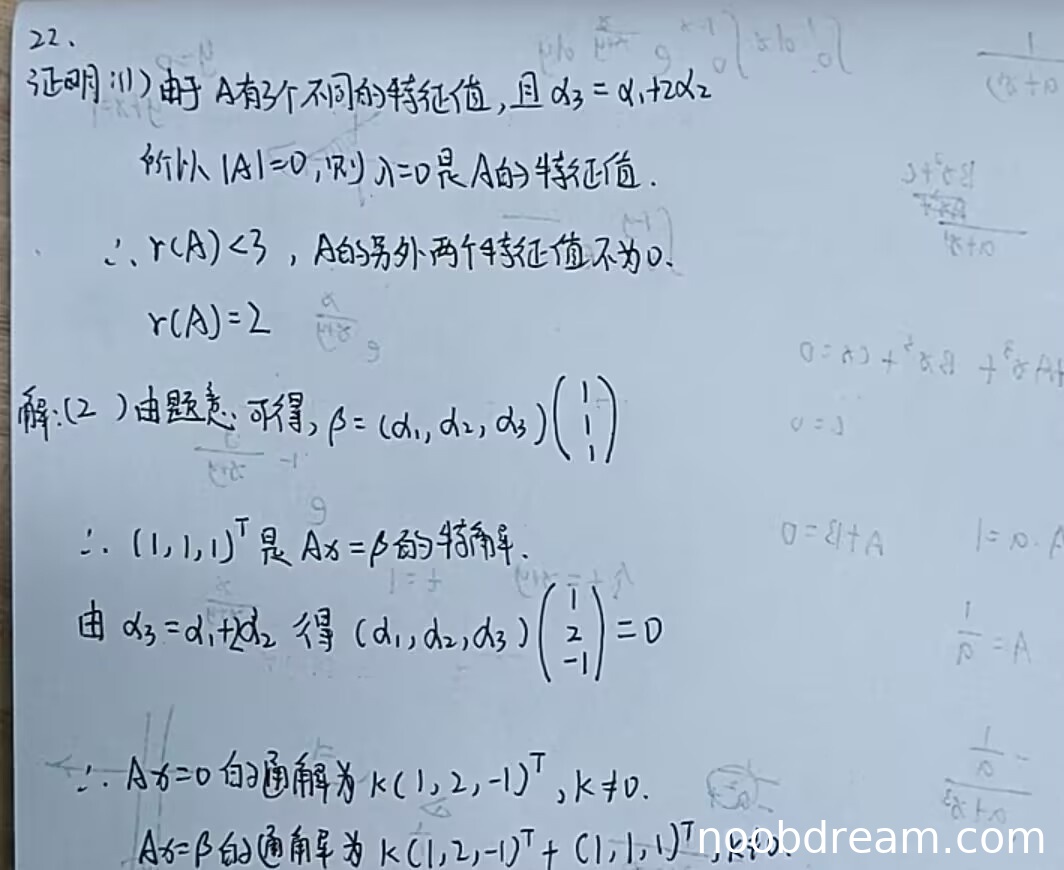 22.
证明:(1) 由于 A有3个不同的特征值,且 α₃ = α₁+2α₂
所以 |A|=0,则 λ=0是A的特征值.
∴ r(A)<3 , A的另外两个特征值不为0.
r(A)=2
解:(2) 由题意可得, β = (α₁, α₂, α₃) (1 1 1)
∴ (1,1,1)ᵀ 是 Ax=β 的特解.
由 α₃=α₁+2α₂ 得 (α₁,α₂,α₃) (1 2 -1) = 0
∴ Ax=0 的通解为 k(1,2,-1)ᵀ , k≠0.
Ax=β的通解为 k(1,2,-1)ᵀ + (1,1,1)ᵀ , k≠0.
noobdream.com